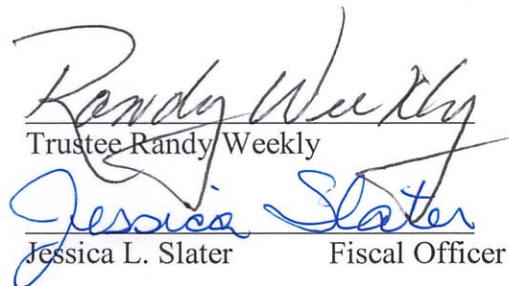 Randy Weekly
Trustee Randy Weekly
Jessica Slater
Jessica L. Slater Fiscal Officer